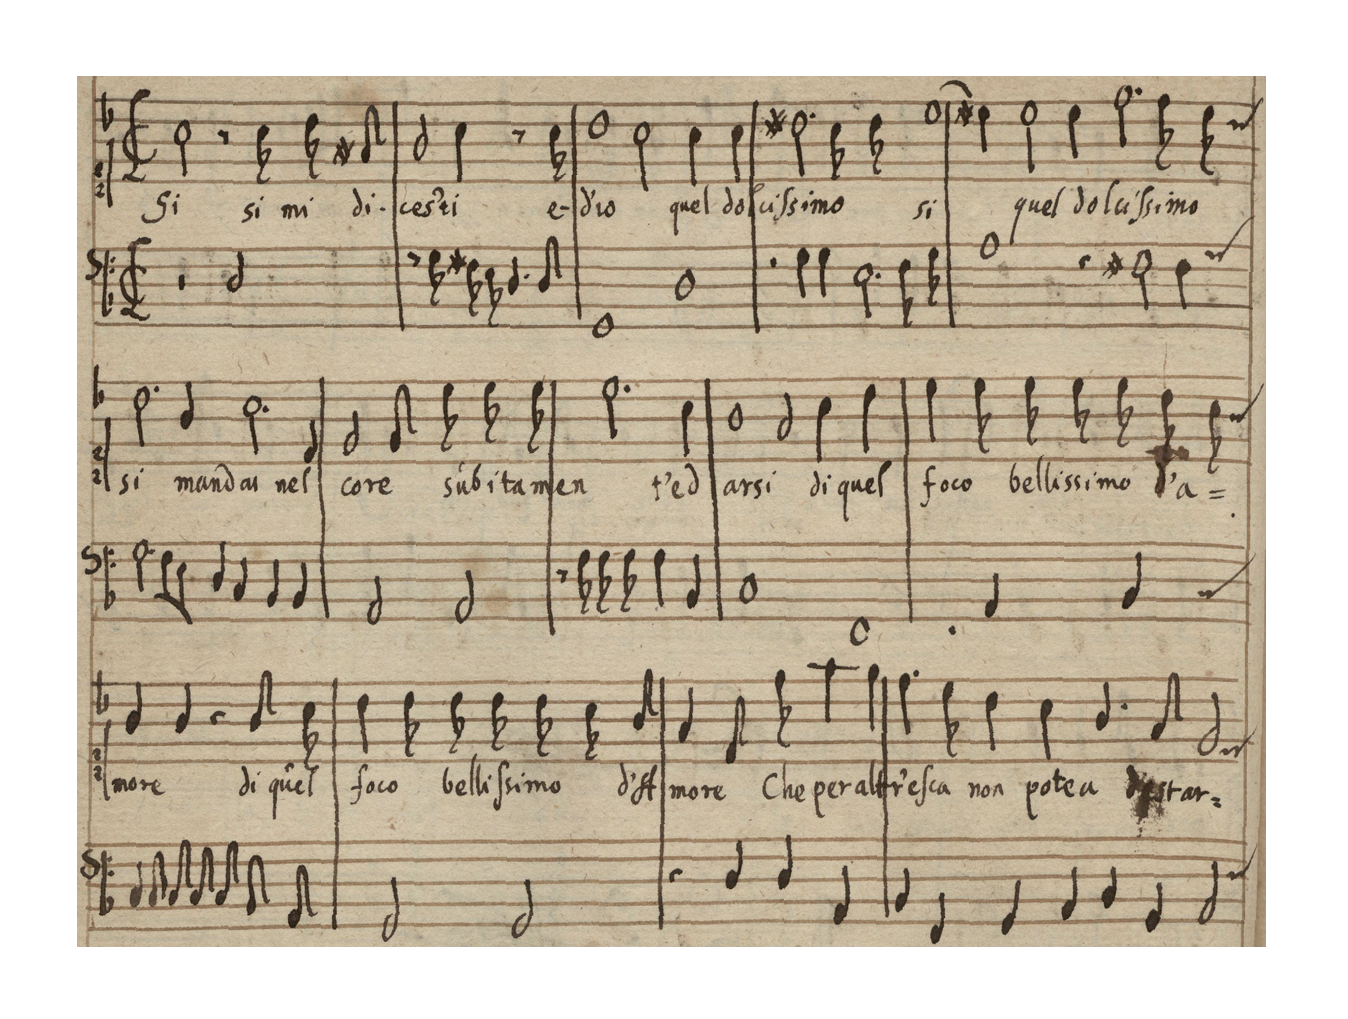 Si si mi di- cesti e- d'io quel dolcissimo si quel dolcissimo
si mandai nel core subitamen t'ed arsi di quel foco bellissimo d'a=
more di quel foco bellissimo d'A more Che per alt r'esca non potea destar=